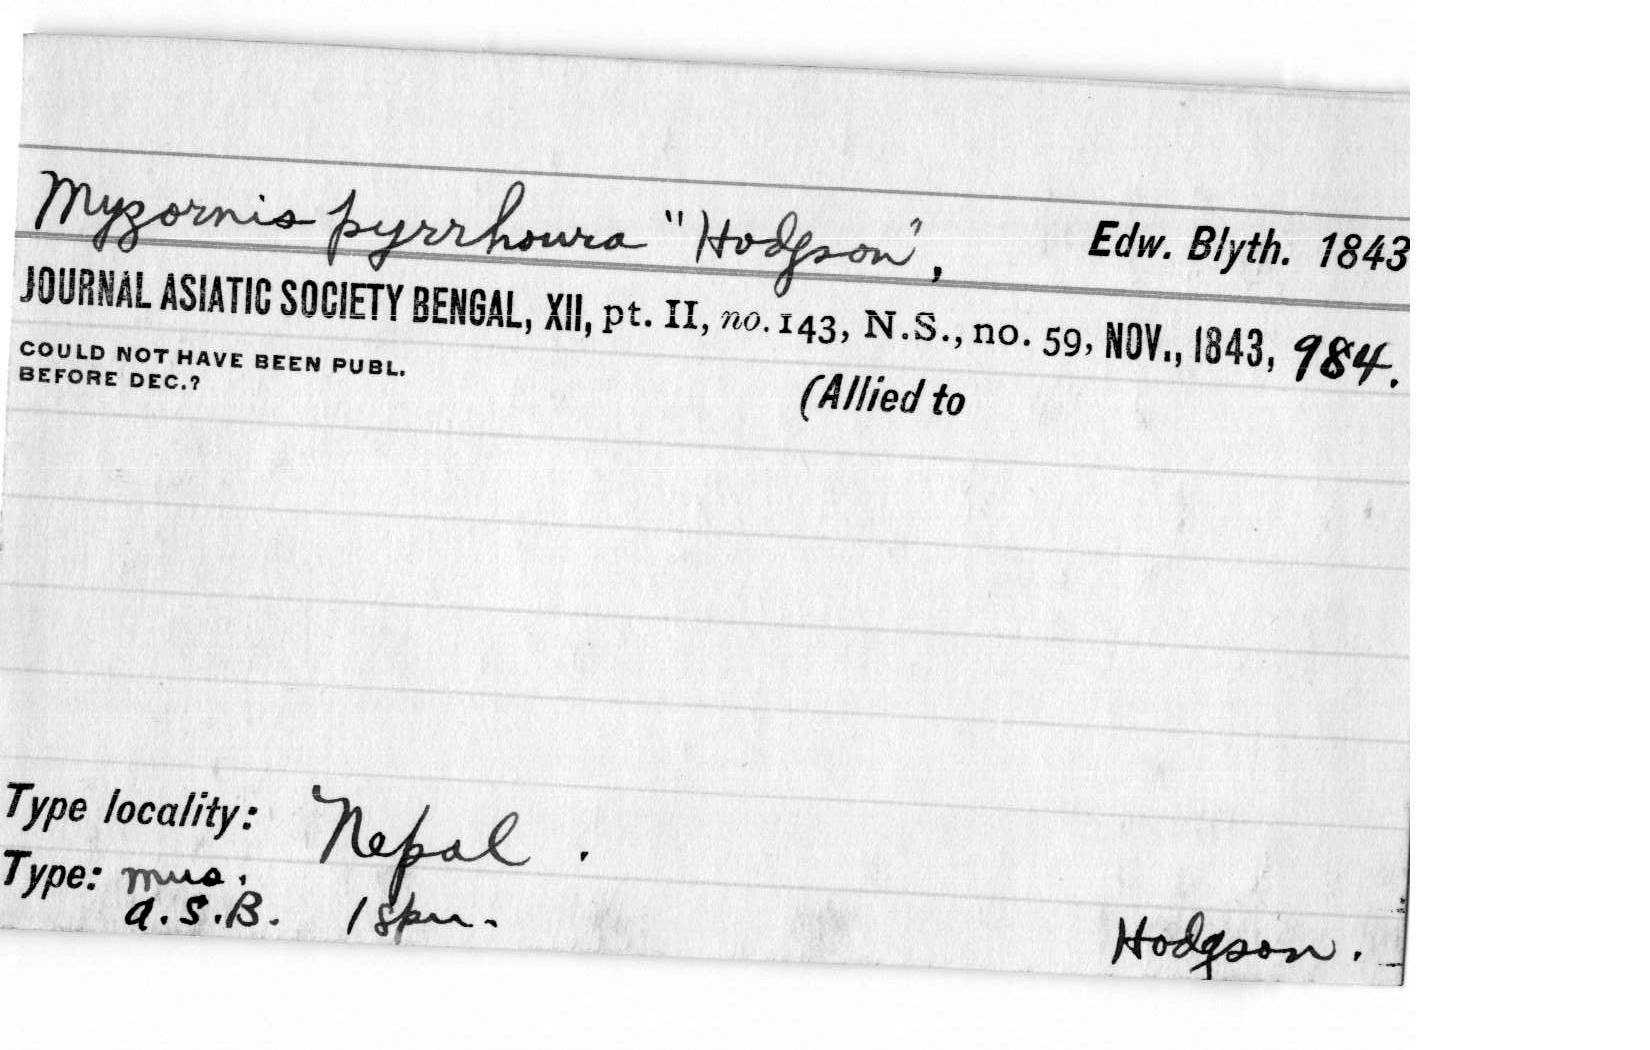 Myzornis pyrrhoura "Hodgson", Edw. Blyth. 1843
JOURNAL ASIATIC SOCIETY BENGAL, XII, pt. II, no. 143, N.S., no. 59, NOV., 1843, 984.
COULD NOT HAVE BEEN PUBL.
BEFORE DEC.?
(Allied to
Type locality: Nepal.
Type: mus.
a.S.B. 1 spm.
Hodgson.